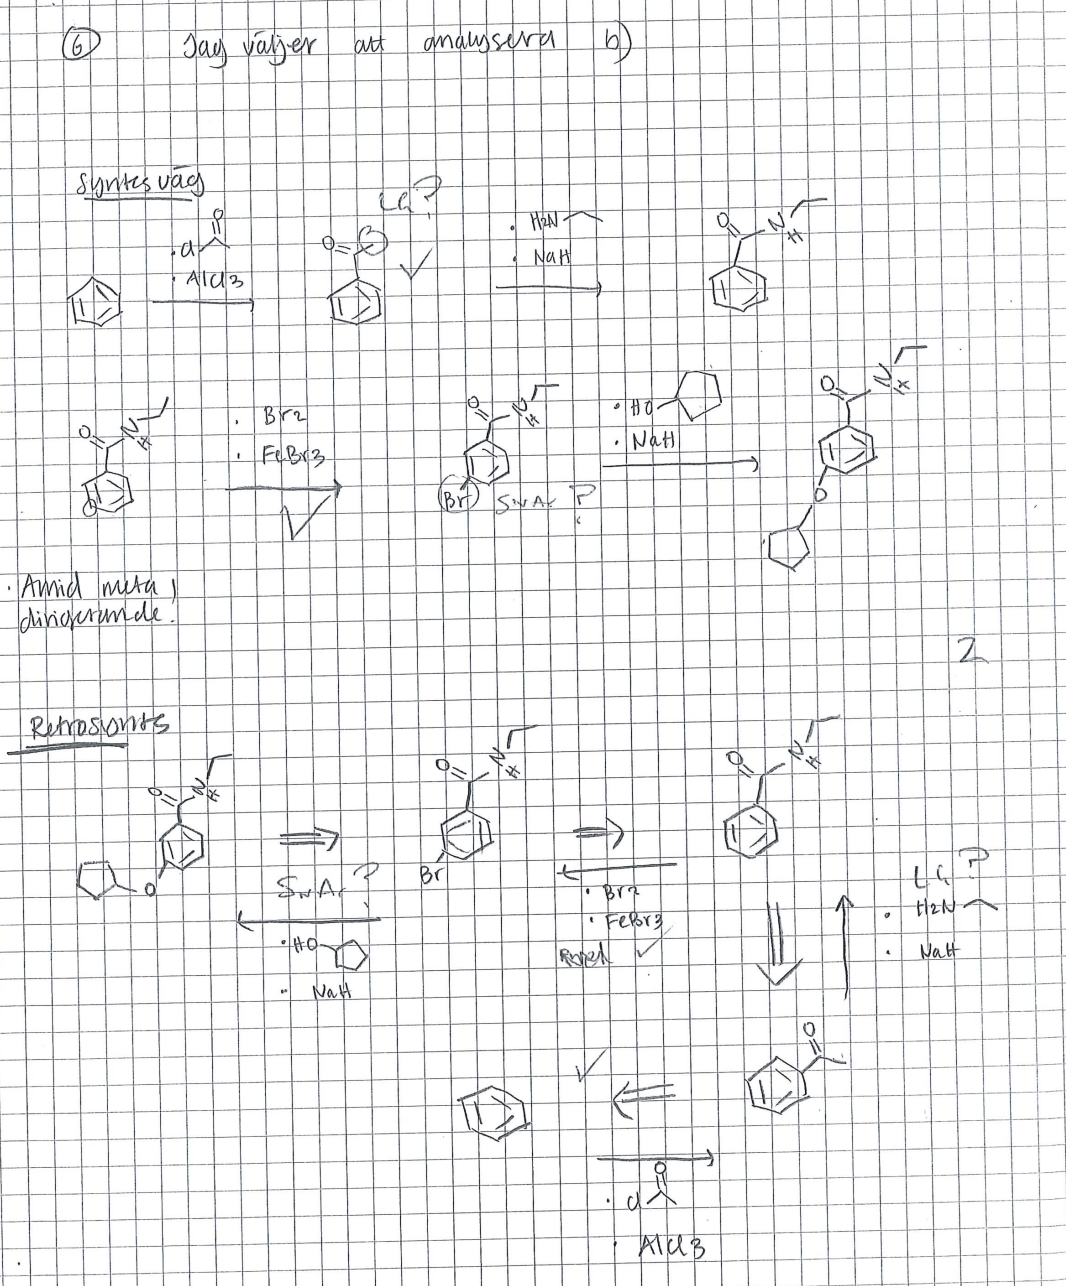 6 Jag väljer att analysera b)
Syntesväg
LG?
O
· Cl
· AlCl3
O
· H2N
· NaH
O N
H
O N
H
· Br2
· FeBr3
O N
H
Br SNAr ?
· HO
· NaH
O N
H
O
· Amid meta
dirigerande.
2
Retrosyntes
O N
H
O
SNAr ?
· HO
· NaH
O N
H
Br
· Br2
· FeBr3
O N
H
LG ?
· H2N
· NaH
O
O
· Cl
· AlCl3